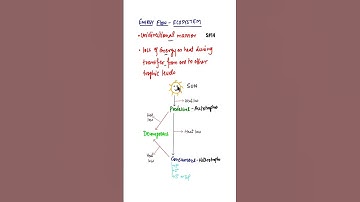 ENERGY FLOW - ECOSYSTEM
• Unidirectional manner
• loss of energy as heat during
transfer from one to other
trophic levels
SUN
Heat loss
Producers - Autotrophs
Heat
loss
Heat loss
Decomposers
Heat
loss
Consumers - Heterotrophs